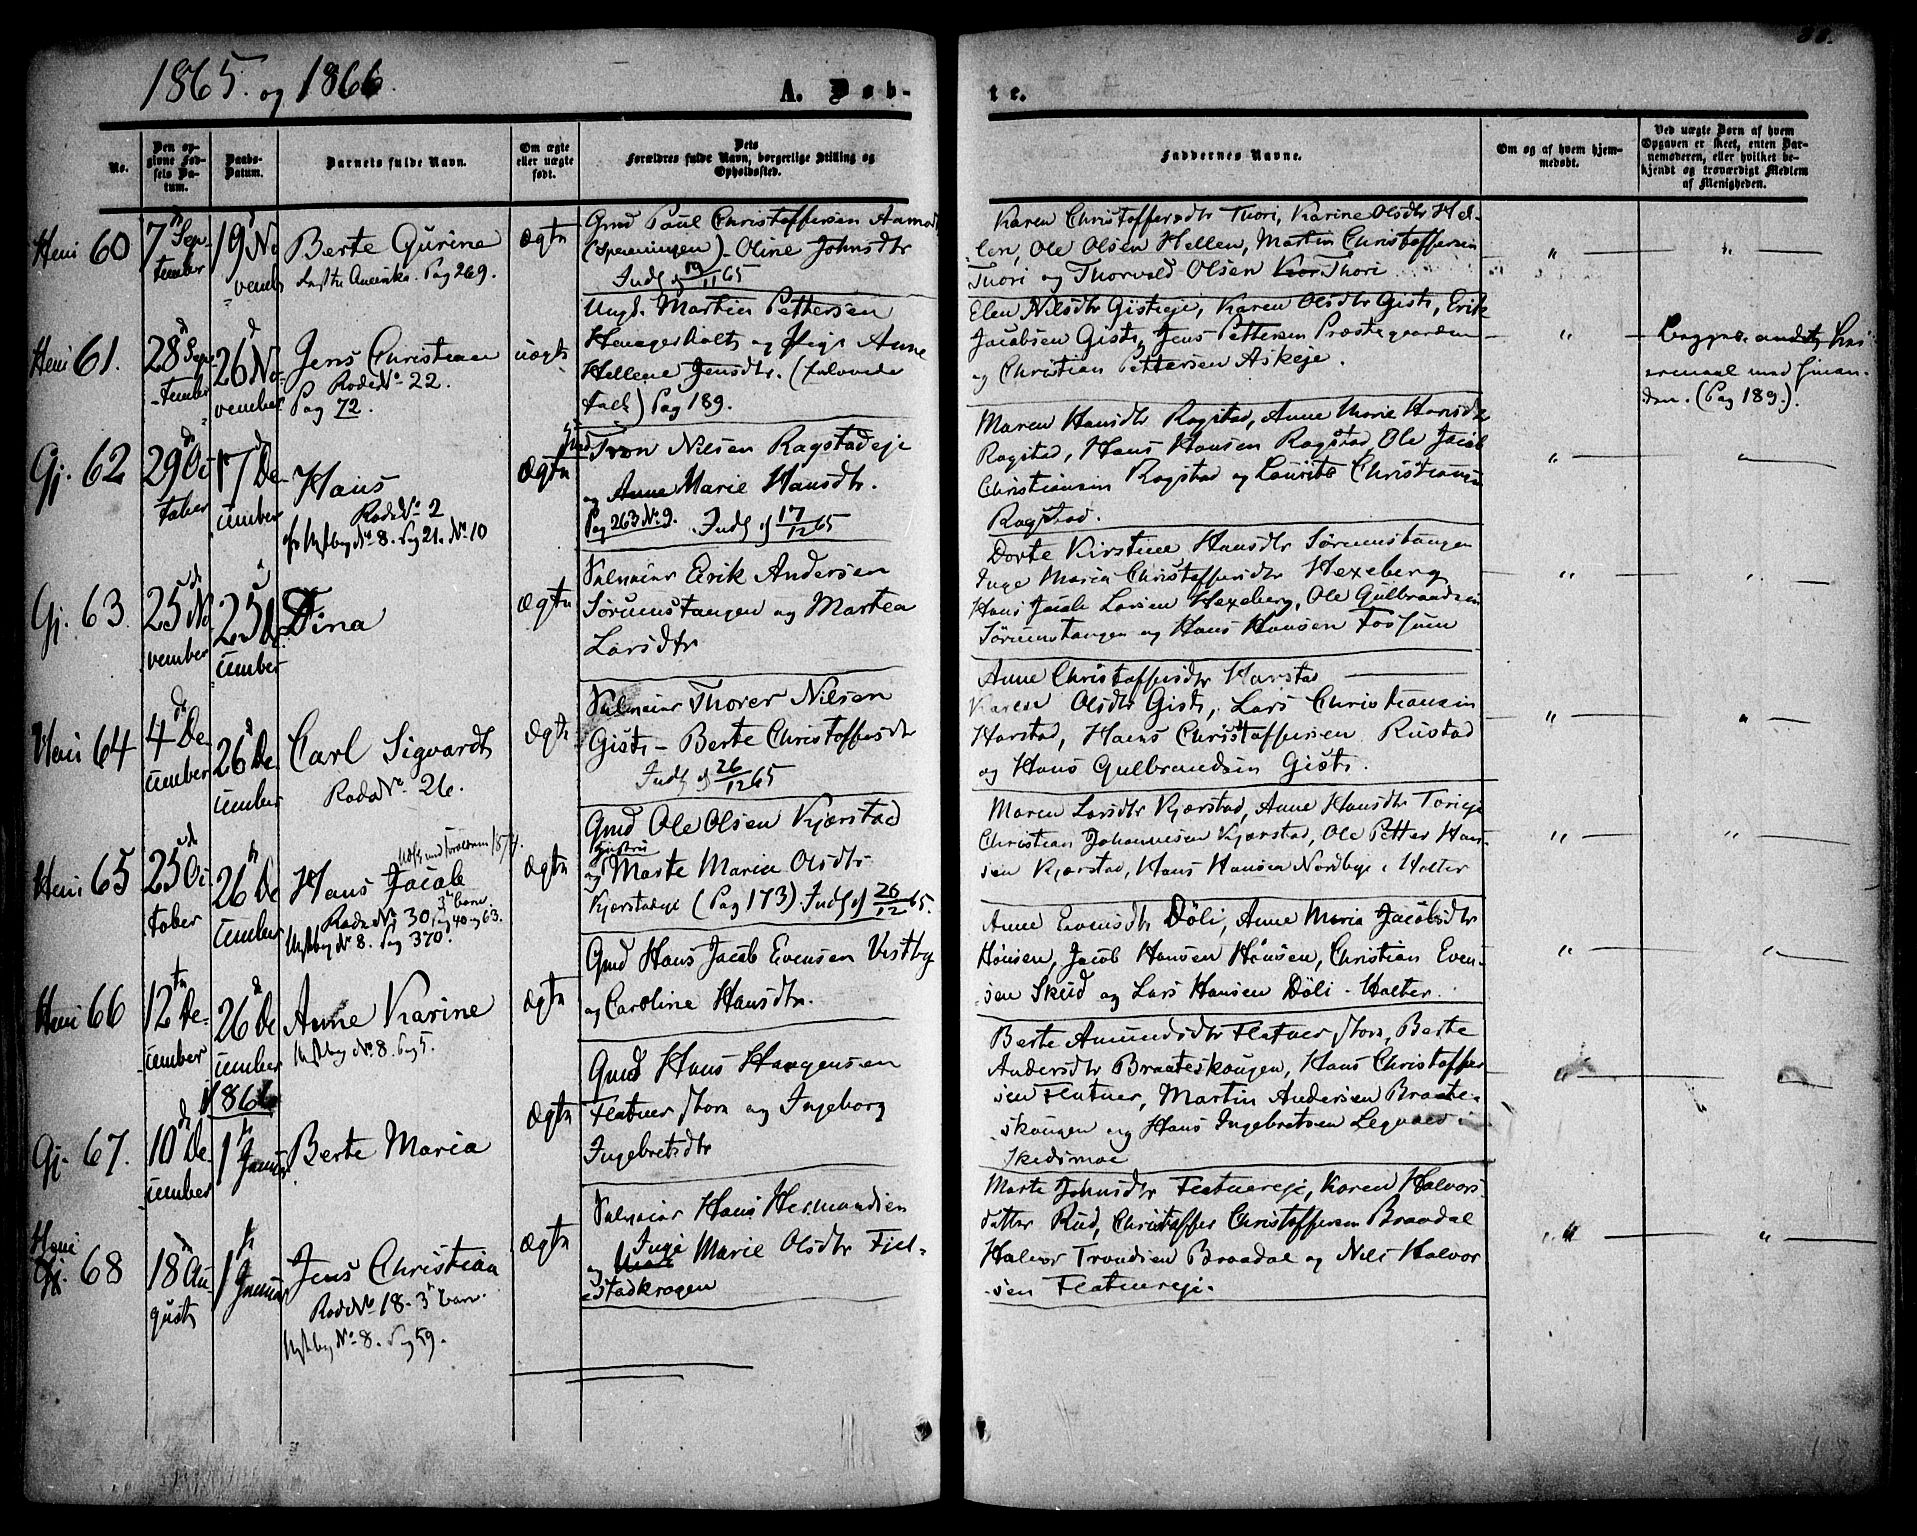 1865. og 1866.
A. Døb-
te.
No.
Den op-
givne Fød-
sels Da-
tum.
Daabs-
Datum.
Barnets fulde Navn.
Om ægte
eller uægte
født.
Dets
Forældres fulde Navn, borgerlige Stilling og
Opholdssted.
Faddernes Navne.
Om og af hvem hjem-
medøbt.
Ved uægte Børn af hvem
Opgaven er skeet, enten Bar-
nemoderen, eller hvilket be-
kjendt og troværdigt Medlem
af Menigheden.
Heni 60
7 Sep-
tember
19 No
vemb
Berte Gurine
Pag 269.
Ægte
Gmd Paul Christoffersen
Oline Johnsdtr
Indf 19/11 65
Karen Christoffersdtr Thori, Karine Olsdtr Hel-
len, Ole Olsen Hellen, Martin Christoffersen
Thori og Thorvald Olsen Thori
Heni 61.
28 Sep-
tember
26 No-
vember
Jens Christian
Rode No 22.
Pag 72.
uægte
Ungk. Martin Pettersen
og Pige Anne
Hellene Jensdtr.
Pag 189.
Elen Nilsdtr Gisteje, Karen Olsdtr Gist, Erik
Jacobsen Gist, Jens Pettersen Præstegaarden
og Christian Pettersen Askeje.
(Pag 189.)
Gj. 62
29 Oc
tober
17 De
cember
Hans
Rode No 2
No 8. Pag 21. No 10
Ægte
Iver Nilsen Ragstadeje
og Anne Marie Hansdtr.
Pag 263 No 9. Indf 17/12 65
Maren Hansdtr Ragstad, Anne Marie Hansdtr
Ragstad, Hans Hansen Ragstad, Ole Jacob
Christiansen Ragstad og Laurits Christiansen
Ragstad.
Gj. 63.
25 No
vember
25 De
cember
Dina
Ægte
Erik Andersen
Sørumstangen og Martea
Larsdtr
Dorte Kirstine Hansdtr Sørumstangen
Inge Maria Christoffersdtr Hexeberg
Hans Jacob Larsen Hexeberg, Ole Gulbrandsen
Sørumstangen og Hans Hansen Fossum
Heni 64
4 De
cember
26 De
cember
Carl Sigvardt
Rode No 26.
Ægte
Thorer Nilsen
Gist - Berte Christoffersdtr
Indf 26/12 65
Anne Christoffersdtr Harstad
Karen Olsdtr Gist, Lars Christiansen
Harstad, Hans Christoffersen Rustad
og Hans Gulbrandsen Gist.
Heni 65
25 Oc
tober
26 De
cember
Hans Jacob
3 barn
Rode No 30. Pag 40 og 63.
No 8. Pag 370.
Ægte
Gmd Ole Olsen Kjærstad
og Marte Maria Olsdtr
Kjærstadeje (Pag 173). Indf 26/12 65.
Maren Larsdtr Kjærstad, Anne Hansdtr Torieje
Christian Johannesen Kjærstad, Ole Petter Han-
sen Kjærstad, Hans Hansen Nordbye i Holter
Heni 66
12 De-
cember
26 De
cember
Anne Karine
No 8. Pag 5.
Ægte
Gmd Hans Jacob Evensen Vestby
og Caroline Hansdtr.
Anne Evensdtr Døli, Anne Maria Jacobsdtr
Hønsen, Jacob Hansen Hønsen, Christian Even-
sen Skud og Lars Hansen Døli - Holter.
Gj. 67.
10 De-
cember
1866
1 Januar
Berte Maria
Ægte
Gmd Hans Haagensen
Flatner store og Ingeborg
Ingebretsdtr
Berte Amundsdtr Flatner store, Berte
Andersdtr Braateskougen, Hans Christoffer
sen Flatner, Martin Andersen Braate-
skougen og Hans Ingebretsen Legvold i
Skedsmoe
Heni
68
18 Au-
gust
1 Januar
Jens Christian
Rode No 18. 3 barn.
No 8. Pag 59.
Ægte
Hans Hermandsen
og Inge Marie Olsdtr Fjel-
stadkrogen
Marte Johnsdtr Flatnereje, Karen Halvors-
datter Rud, Christoffer Christoffersen Braadal
Halvor Trondsen Braadal og Nils Halvor
sen Flatnereje.